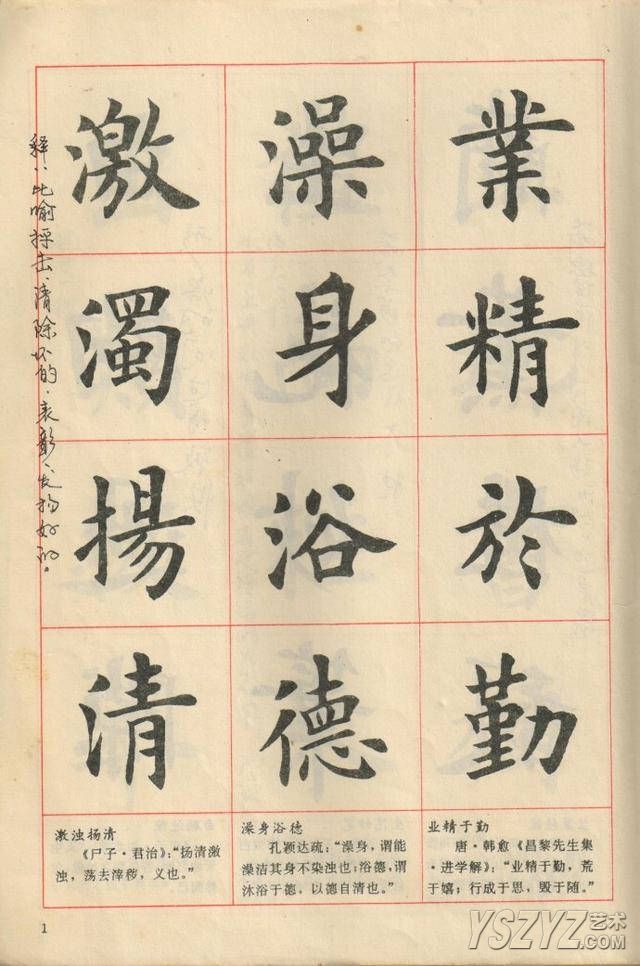 業精於勤
澡身浴德
激濁揚清
释:比喻抨击、清除坏的,表彰、发扬好的。
业精于勤
唐·韩愈《昌黎先生集
·进学解》:“业精于勤,荒
于嬉;行成于思,毁于随。”
澡身浴德
孔颖达疏:“澡身,谓能
澡洁其身不染浊也;浴德,谓
沐浴于德,以德自清也。”
激浊扬清
《尸子·君治》:“扬清激
浊,荡去滓秽,义也。”
1
YSZYZ艺术
.com